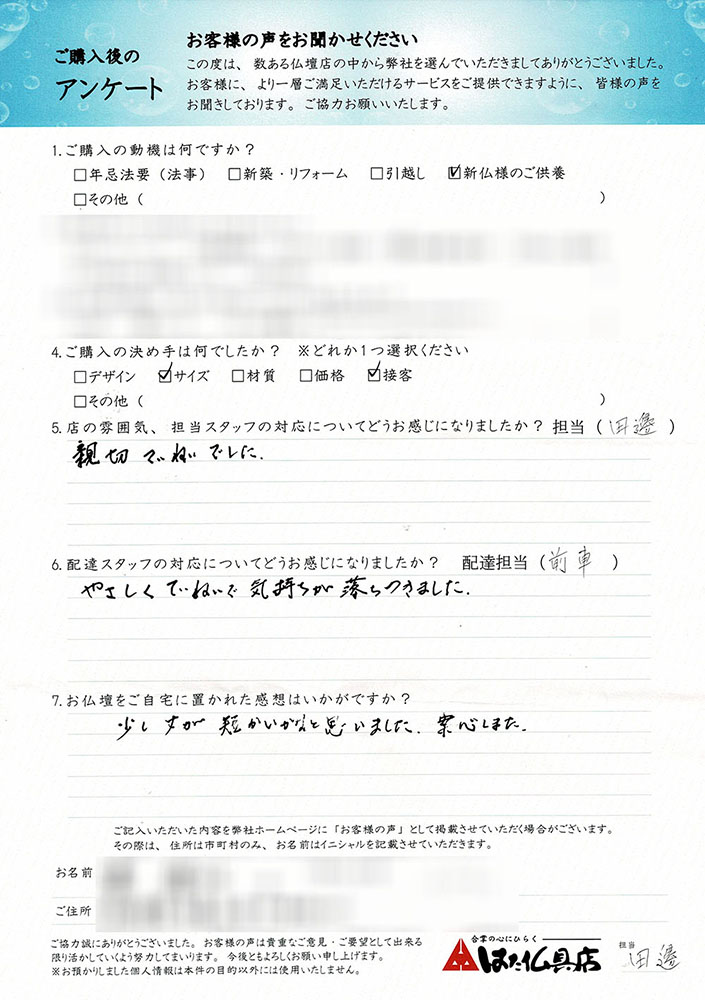 ご購入後の
アンケート
お客様の声をお聞かせください
この度は、数ある仏壇店の中から弊社を選んでいただきましてありがとうございました。
お客様に、より一層ご満足いただけるサービスをご提供できますように、皆様の声を
お聞きしております。ご協力お願いいたします。
1.ご購入の動機は何ですか?
□年忌法要(法事) □新築・リフォーム □引越し ☑新仏様のご供養
□その他( )
4.ご購入の決め手は何でしたか? ※どれか1つ選択ください
□デザイン ☑サイズ □材質 □価格 ☑接客
□その他( )
5.店の雰囲気、担当スタッフの対応についてどうお感じになりましたか?担当(田邊)
親切 でねい でした.
6.配達スタッフの対応についてどうお感じになりましたか? 配達担当(前車)
やさしく ていねいで 気持ちが 落ちつきました.
7.お仏壇をご自宅に置かれた感想はいかがですか?
少し 丈が 短かいかなと思いました. 安心しました.
ご記入いただいた内容を弊社ホームページに「お客様の声」として掲載させていただく場合がございます。
その際は、住所は市町村のみ、お名前はイニシャルを記載させていただきます。
お名前
ご住所
ご協力誠にありがとうございました。お客様の声は貴重なご意見・ご要望として出来る
限り活かしていくよう努力してまいります。今後ともよろしくお願い申し上げます。
※お預かりしました個人情報は本件の目的以外には使用いたしません。
合掌の心にひらく
はた仏具店
担当 田邊